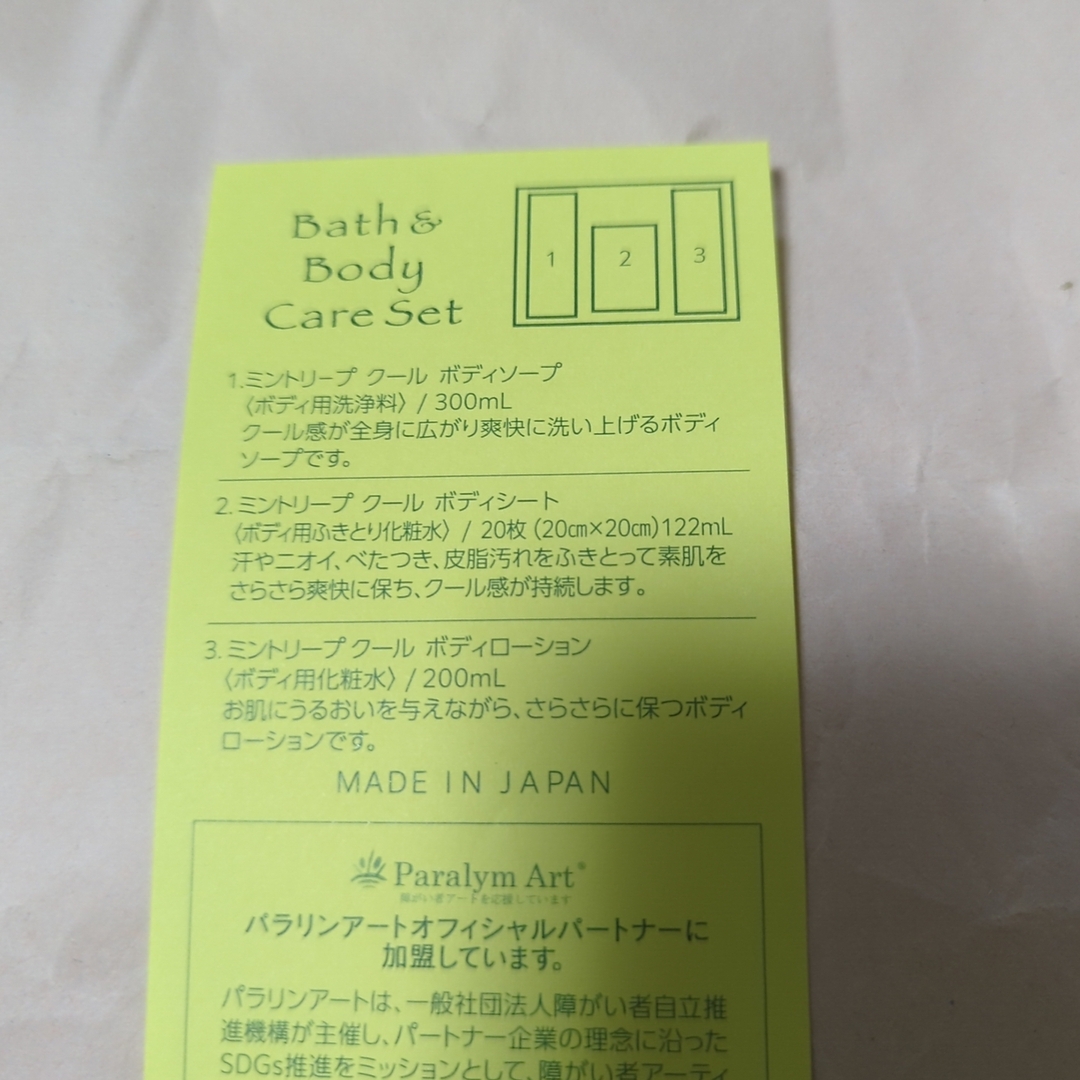 Bath &
Body
Care Set
1 2 3
1.ミントリープ クール ボディソープ
〈ボディ用洗浄料〉 / 300mL
クール感が全身に広がり爽快に洗い上げるボディ
ソープです。
2.ミントリープ クール ボディシート
〈ボディ用ふきとり化粧水〉 / 20枚 (20㎝×20㎝)122mL
汗やニオイ、べたつき、皮脂汚れをふきとって素肌を
さらさら爽快に保ち、クール感が持続します。
3.ミントリープ クール ボディローション
〈ボディ用化粧水〉 / 200mL
お肌にうるおいを与えながら、さらさらに保つボディ
ローションです。
MADE IN JAPAN
Paralym Art®
障がい者アートを応援しています
パラリンアートオフィシャルパートナーに
加盟しています。
パラリンアートは、一般社団法人障がい者自立推
進機構が主催し、パートナー企業の理念に沿った
SDGs推進をミッションとして、障がい者アーティ